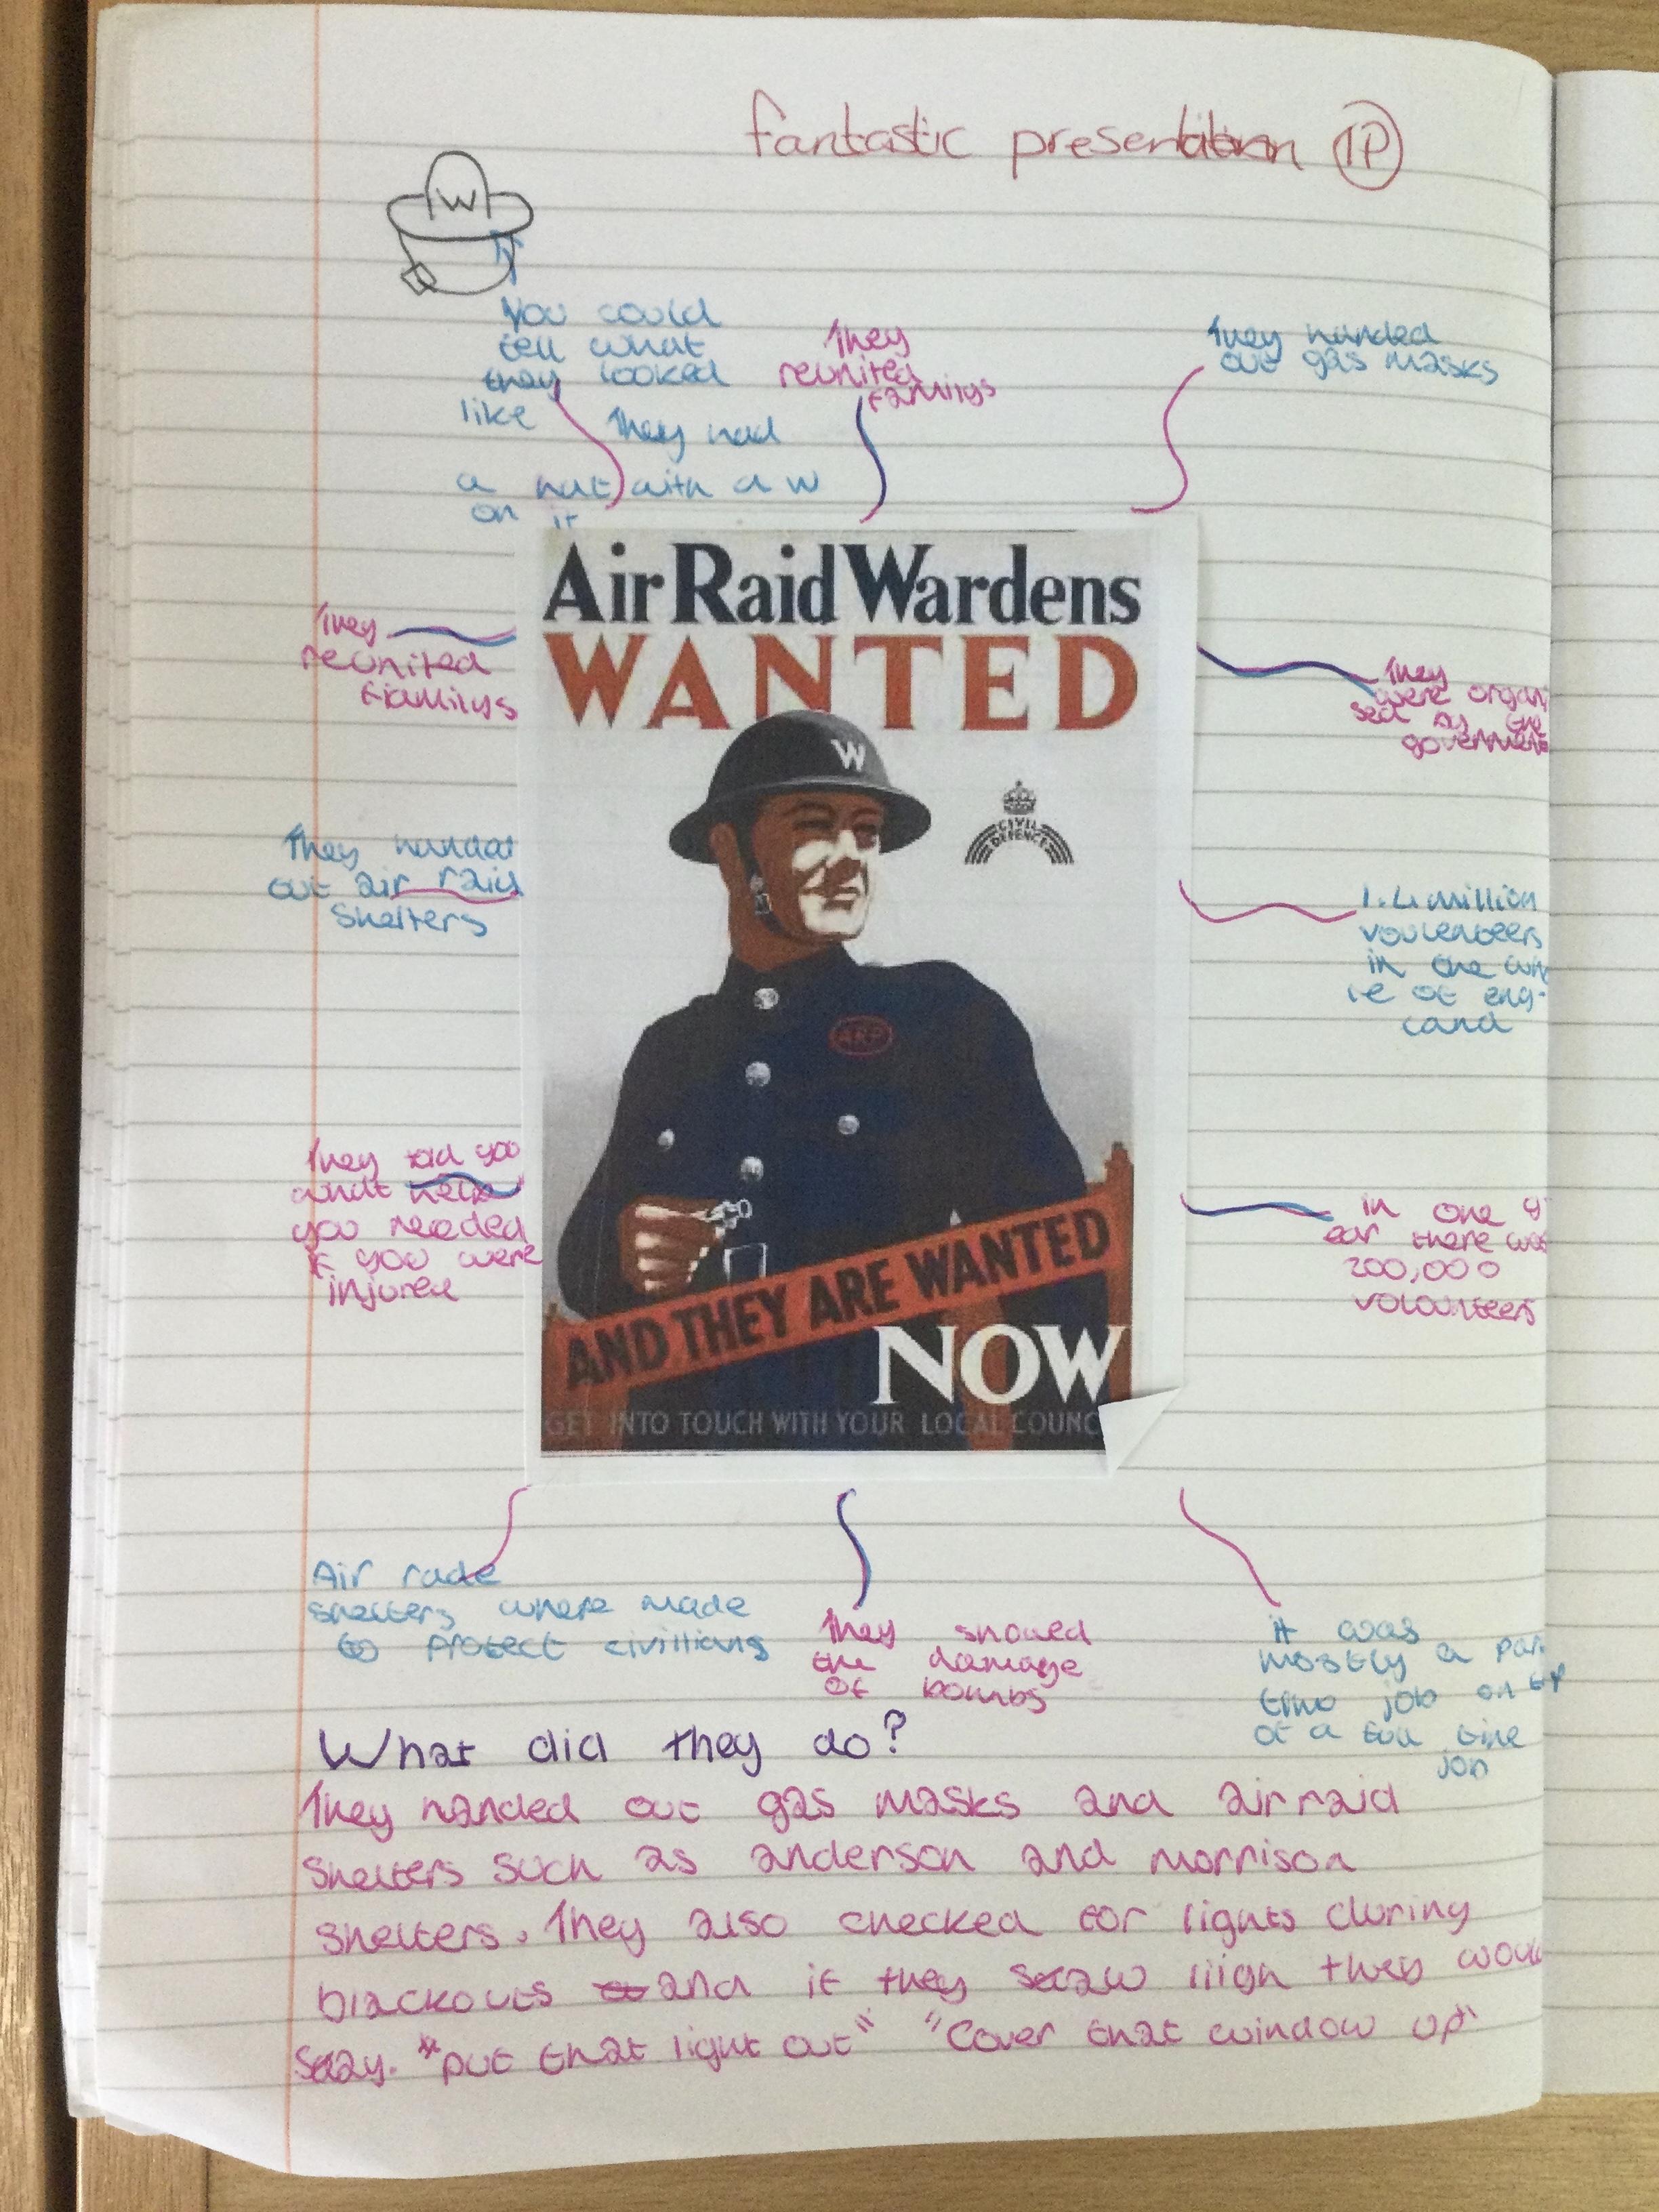 fantastic presentation 1P
W
You could
tell what
they looked
like They had
a hat with a w
on it
They
reunited
familys
They handed
out gas masks
Air Raid Wardens
WANTED
W
CIVIL
DEFENCE
ARP
AND THEY ARE WANTED
NOW
GET INTO TOUCH WITH YOUR LOCAL COUNC
They
reunited
familys
They handat
out air raid
Shelters
They told you
what help
you needed
if you were
injured
They
were organi
sed by the
government
1.4 million
voulenteers
in the
of eng-
land
in one y
ear there was
200,000
volounteers
Air rade
shelters where made
to protect civillians
They showed
the damage
of bombs
it was
mostly a par
time job on
of a full time
job
What did they do?
They handed out gas masks and air raid
Shelters such as anderson and morrison
shelters. They also checked for lights during
blackouts and if they saw they would
say. "put that light out" "Cover that window up"